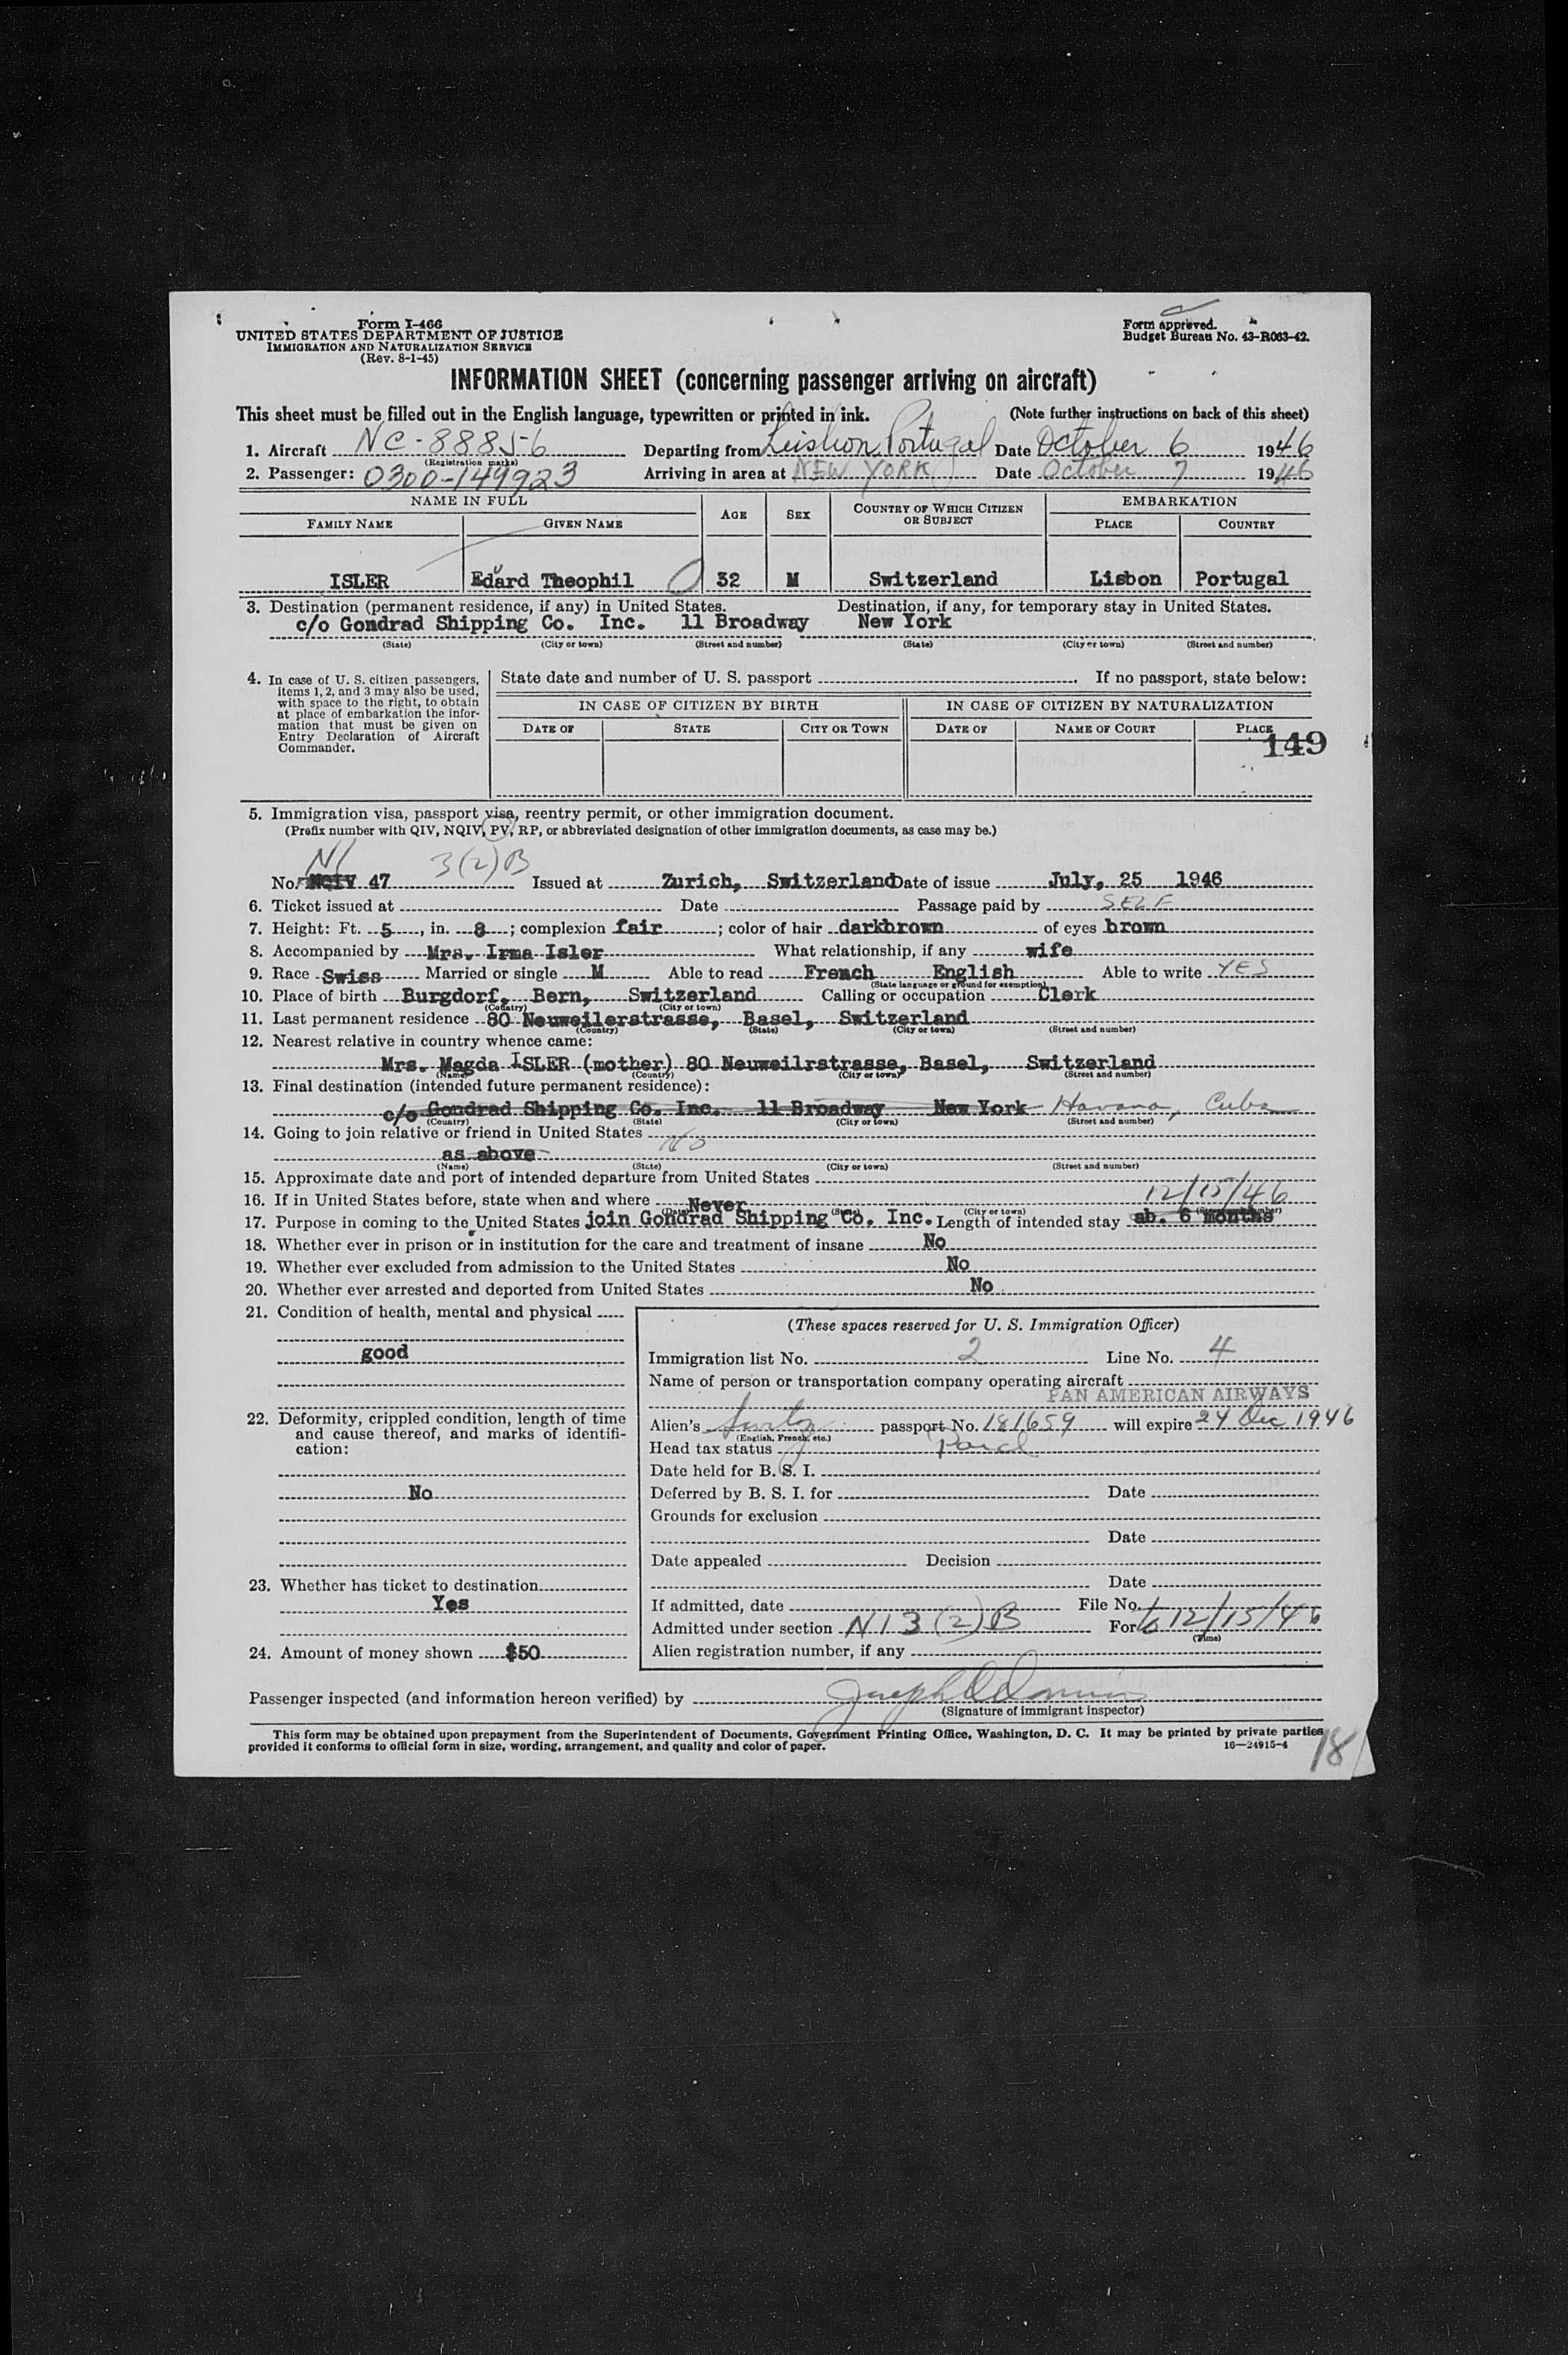 Form I-466
UNITED STATES DEPARTMENT OF JUSTICE
IMMIGRATION AND NATURALIZATION SERVICE
(Rev. 8-1-45)
Form approved.
Budget Bureau No. 43-R063-42.
INFORMATION SHEET (concerning passenger arriving on aircraft)
This sheet must be filled out in the English language, typewritten or printed in ink. (Note further instructions on back of this sheet)
1. Aircraft NC-88856 Departing from Lisbon, Portugal Date October 6 1946
(Registration marks)
2. Passenger: 0300-149923 Arriving in area at NEW YORK Date October 7 1946
NAME IN FULL AGE SEX COUNTRY OF WHICH CITIZEN OR SUBJECT EMBARKATION
FAMILY NAME GIVEN NAME PLACE COUNTRY
ISLER Edúard Theophil 32 M Switzerland Lisbon Portugal
3. Destination (permanent residence, if any) in United States. Destination, if any, for temporary stay in United States.
c/o Gondrad Shipping Co. Inc. 11 Broadway New York
(State) (City or town) (Street and number) (State) (City or town) (Street and number)
4. In case of U. S. citizen passengers, items 1, 2, and 3 may also be used, with space to the right, to obtain at place of embarkation the information that must be given on Entry Declaration of Aircraft Commander.
State date and number of U. S. passport If no passport, state below:
IN CASE OF CITIZEN BY BIRTH IN CASE OF CITIZEN BY NATURALIZATION
DATE OF STATE CITY OR TOWN DATE OF NAME OF COURT PLACE
149
5. Immigration visa, passport visa, reentry permit, or other immigration document.
(Prefix number with QIV, NQIV, PV, RP, or abbreviated designation of other immigration documents, as case may be.)
NI 3(2)B
No. NQIV 47 Issued at Zurich, Switzerland Date of issue July, 25 1946
6. Ticket issued at Date Passage paid by SELF
7. Height: Ft. 5, in. 8; complexion fair; color of hair darkbrown of eyes brown
8. Accompanied by Mrs. Irma Isler What relationship, if any wife
9. Race Swiss Married or single M Able to read French English Able to write YES
(State language or ground for exemption)
10. Place of birth Burgdorf, Bern, Switzerland Calling or occupation Clerk
(Country) (City or town)
11. Last permanent residence 80 Neuweilerstrasse, Basel, Switzerland
(Country) (State) (City or town) (Street and number)
12. Nearest relative in country whence came:
Mrs. Magda ISLER (mother) 80 Neuweilrstrasse, Basel, Switzerland
(Name) (Country) (City or town) (Street and number)
13. Final destination (intended future permanent residence):
c/o Gondrad Shipping Co. Inc. 11 Broadway New York Havana, Cuba
(Country) (State) (City or town) (Street and number)
14. Going to join relative or friend in United States No
as above
(Name) (State) (City or town) (Street and number)
15. Approximate date and port of intended departure from United States
16. If in United States before, state when and where Never 12/15/46
(Date) (State) (City or town) (Street and number)
17. Purpose in coming to the United States join Gondrad Shipping Co. Inc. Length of intended stay ab. 6 months
18. Whether ever in prison or in institution for the care and treatment of insane No
19. Whether ever excluded from admission to the United States No
20. Whether ever arrested and deported from United States No
21. Condition of health, mental and physical
good
22. Deformity, crippled condition, length of time and cause thereof, and marks of identification:
No
23. Whether has ticket to destination
Yes
24. Amount of money shown $50
(These spaces reserved for U. S. Immigration Officer)
Immigration list No. 2 Line No. 4
Name of person or transportation company operating aircraft
PAN AMERICAN AIRWAYS
Alien's passport No. 181659 will expire 24 Dec 1946
(English, French, etc.)
Head tax status Paid
Date held for B. S. I.
Deferred by B. S. I. for Date
Grounds for exclusion
Date
Date appealed Decision
Date
If admitted, date File No.
Admitted under section NI 3(2)B For to 12/15/46
(Time)
Alien registration number, if any
Passenger inspected (and information hereon verified) by
(Signature of immigrant inspector)
This form may be obtained upon prepayment from the Superintendent of Documents, Government Printing Office, Washington, D. C. It may be printed by private parties
provided it conforms to official form in size, wording, arrangement, and quality and color of paper. 16—24915-4
18